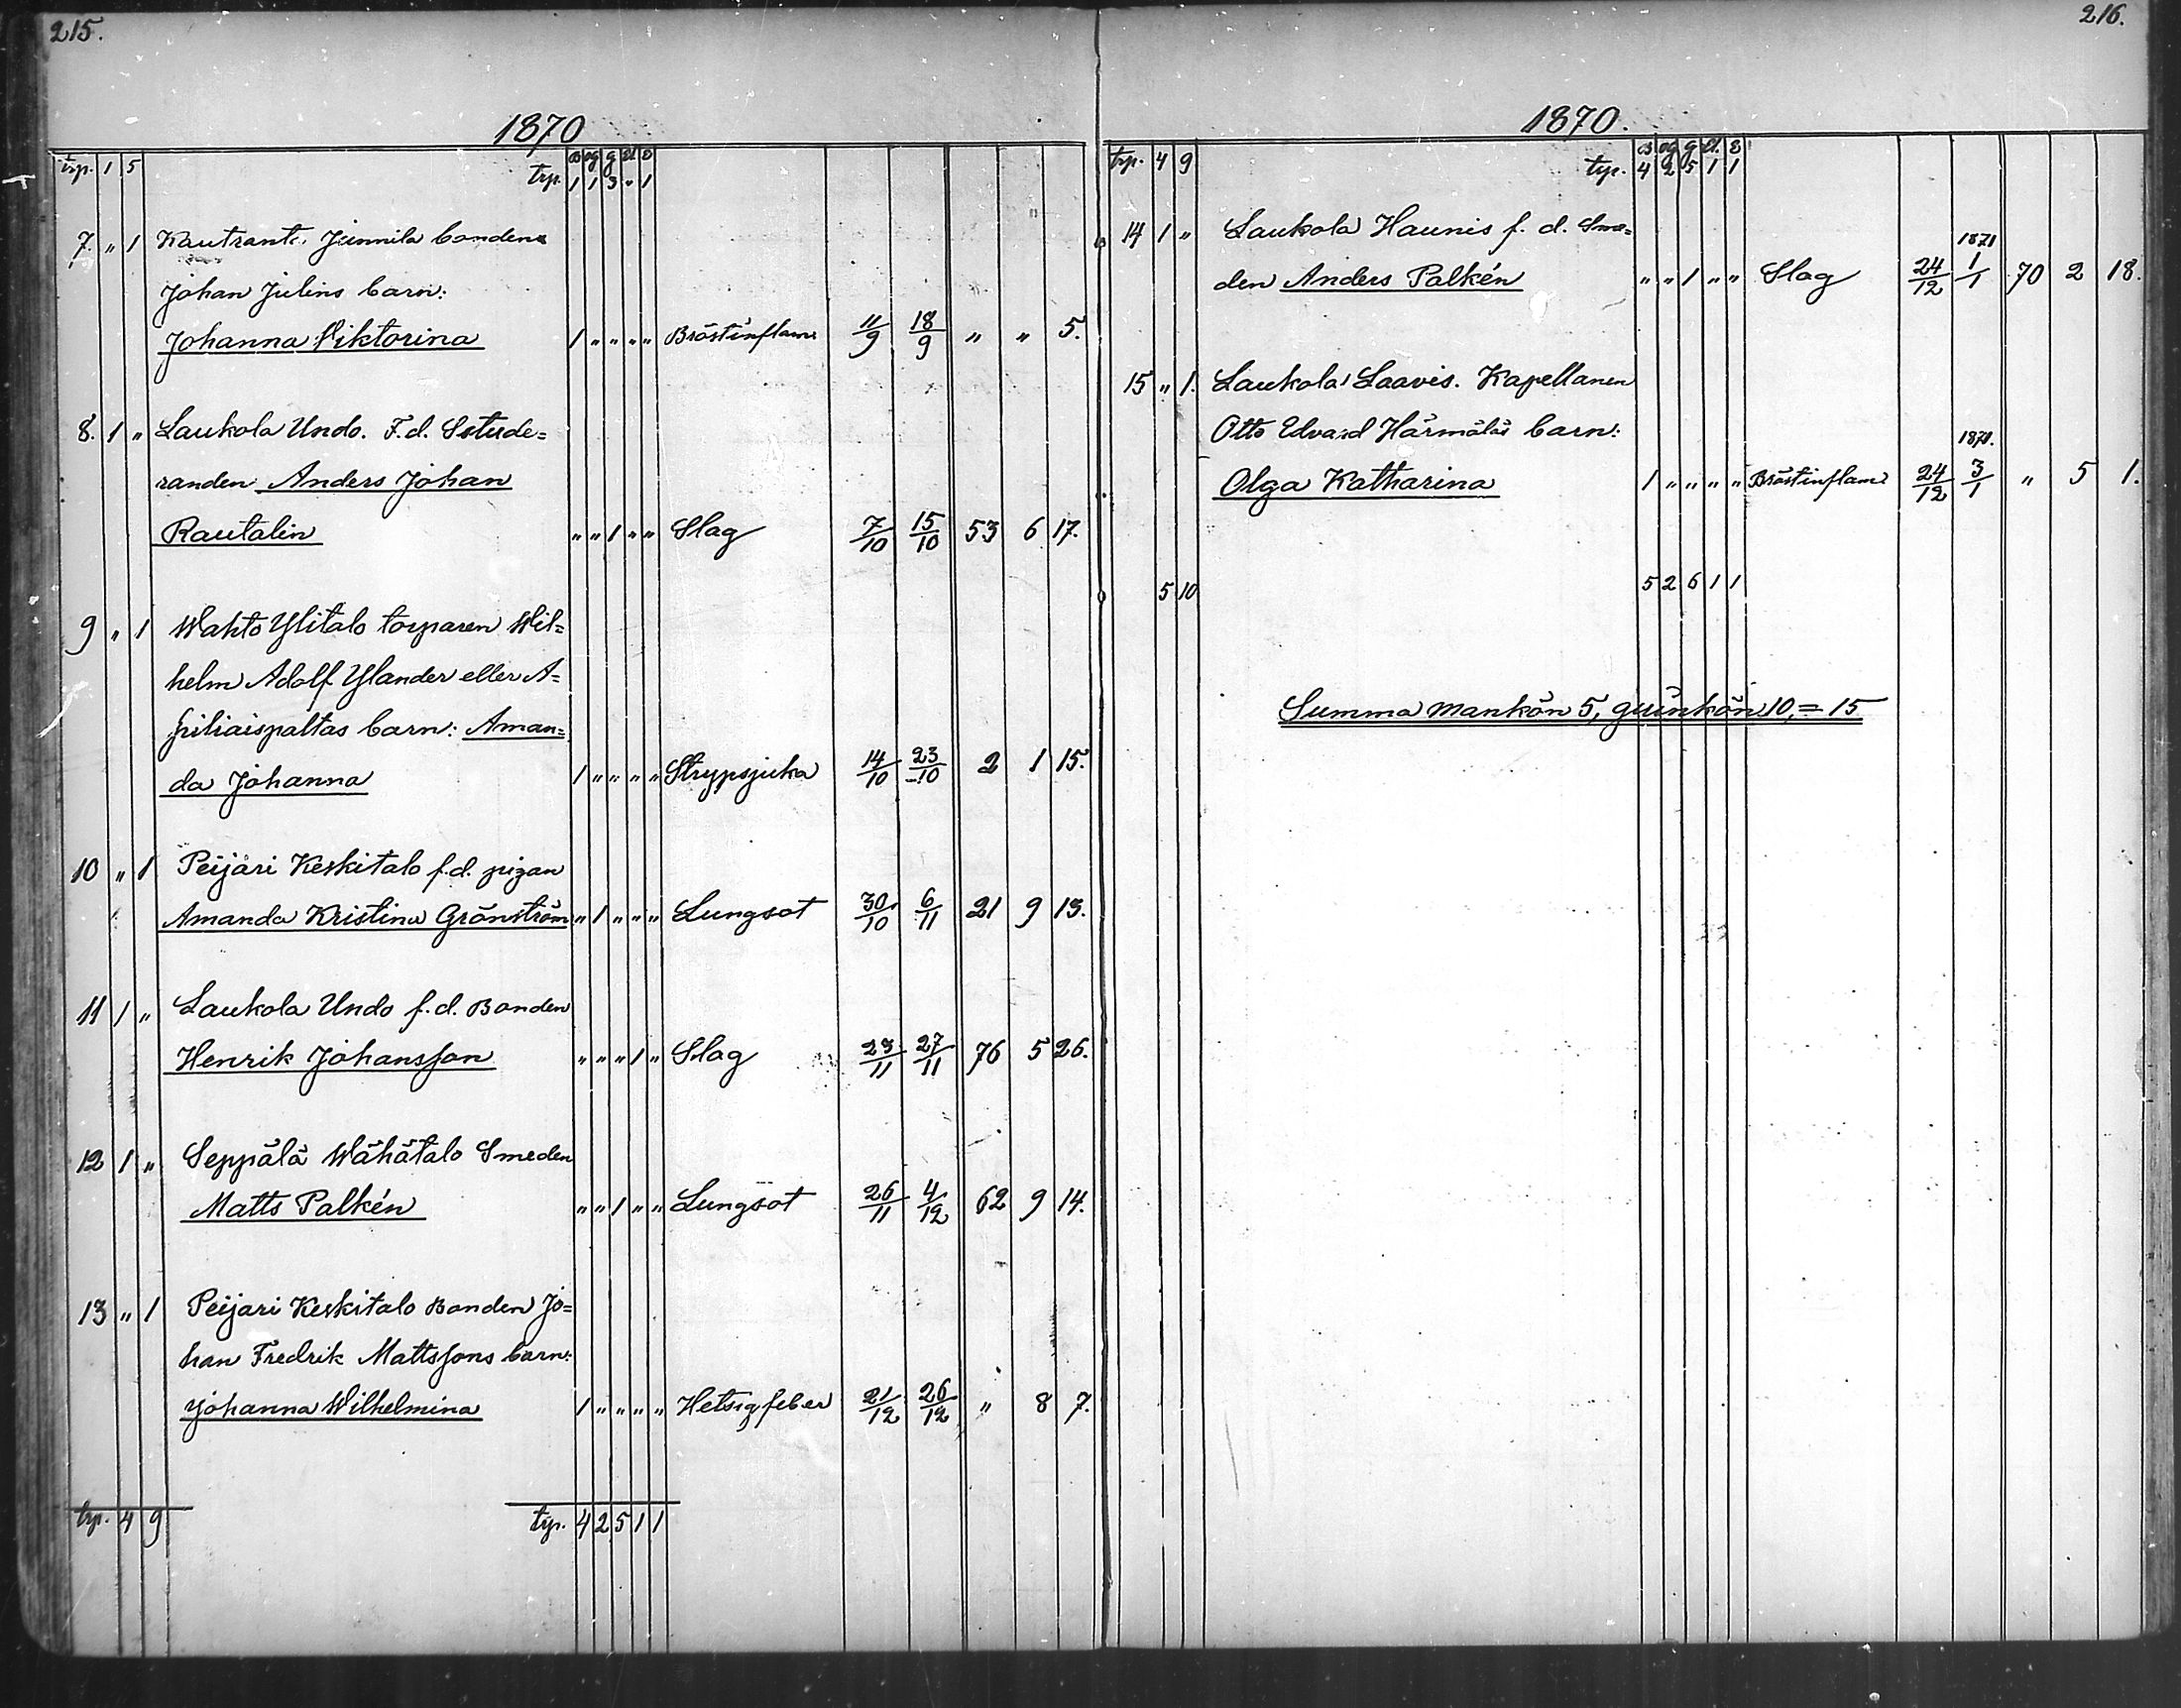 215.
1870
trp. 1 5 trp. B og g äl 8
1 1 3 „ 1
7. „ 1 Kautrant. Junnila bondens
Johan Julins barn:
Johanna Viktorina 1 „ „ „ „ Bröstinflam. 11/9 18/9 „ „ 5.
8. 1 „ Laukola Undo. F.d. Sstude=
randen Anders Johan
Rautalin „ „ 1 „ „ Slag 7/10 15/10 53 6 17.
9 „ 1 Wahto Ylitalo torparen Wil=
helm Adolf Ylander eller A=
barn: Aman=
da Johanna 1 „ „ „ „ Strypsjuka 14/10 23/10 2 1 15.
10 „ 1 Peijäri Keskitalo f.d. pigan
Amanda Kristina Grönström „ 1 „ „ „ Lungsot 30/10 6/11 21 9 13.
11 1 „ Laukola Undo f.d. Bonden
Henrik Johansson „ „ „ 1 „ Slag 23/11 27/11 76 5 26.
12 1 „ Seppälä Wähätalo Smeden
Matts Palkén „ „ 1 „ „ Lungsot 26/11 4/12 62 9 14.
13 „ 1 Peijari Keskitalo Bonden Jo=
han Fredrik Mattssons barn:
Johanna Wilhelmina 1 „ „ „ „ Hetsig feber 21/12 26/12 „ 8 7.
trp. 4 9 trp. 4 2 5 1 1
216.
1870.
trp. 4 9 trp. B og g äl. 8
4 2 5 1 1
14 1 „ Laukola Haunis f. d. Sme=
den Anders Palkén „ „ 1 „ „ Slag 24/12 1871 1/1 70 2 18.
15 „ 1. Laukola Laavis. Kapellanen
Otto Edvard Härmäläs barn:
Olga Katharina 1 „ „ „ „ Bröstinflam. 24/12 1871. 3/1 „ 5 1.
5 10 5 2 6 1 1
Summa mankön 5, quinkön 10, = 15